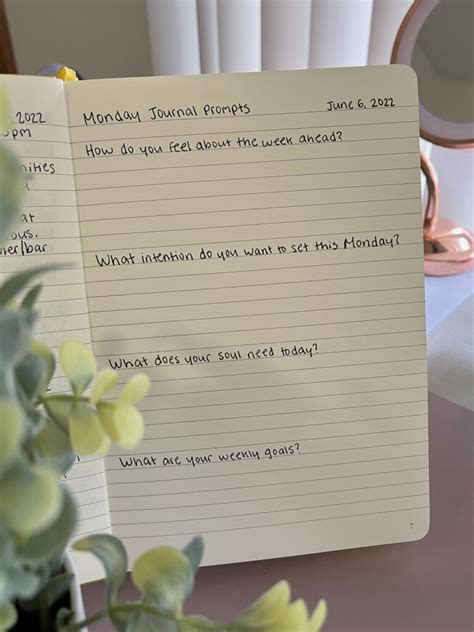 2022
pm
Monday Journal Prompts
June 6, 2022
How do you feel about the week ahead?
What intention do you want to set this Monday?
What does your soul need today?
What are your weekly goals?
7